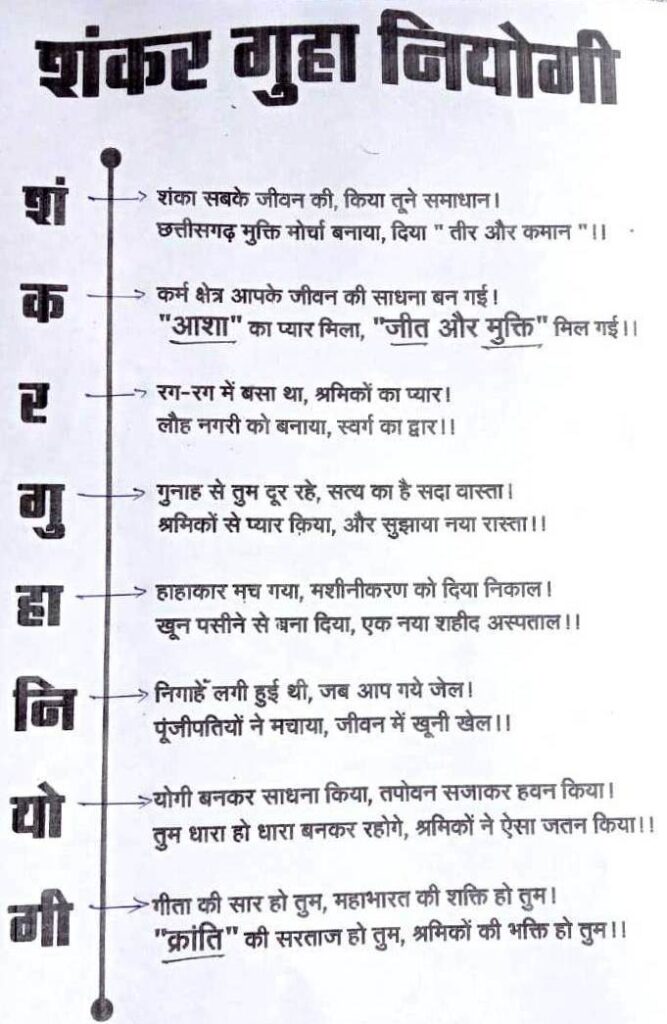 शंकर गुहा नियोगी
शं → शंका सबके जीवन की, किया तूने समाधान।
छत्तीसगढ़ मुक्ति मोर्चा बनाया, दिया " तीर और कमान "।।
क → कर्म क्षेत्र आपके जीवन की साधना बन गई!
"आशा" का प्यार मिला, "जीत और मुक्ति" मिल गई।।
र → रग-रग में बसा था, श्रमिकों का प्यार!
लौह नगरी को बनाया, स्वर्ग का द्वार!!
गु → गुनाह से तुम दूर रहे, सत्य का है सदा वास्ता।
श्रमिकों से प्यार किया, और सुझाया नया रास्ता!!
हा → हाहाकार मच गया, मशीनीकरण को दिया निकाल!
खून पसीने से बना दिया, एक नया शहीद अस्पताल!!
नि → निगाहेँ लगी हुई थी, जब आप गये जेल!
पूंजीपतियों ने मचाया, जीवन में खूनी खेल।।
यो → योगी बनकर साधना किया, तपोवन सजाकर हवन किया!
तुम धारा हो धारा बनकर रहोगे, श्रमिकों ने ऐसा जतन किया!!
गी → गीता की सार हो तुम, महाभारत की शक्ति हो तुम!
"क्रांति" की सरताज हो तुम, श्रमिकों की भक्ति हो तुम!!